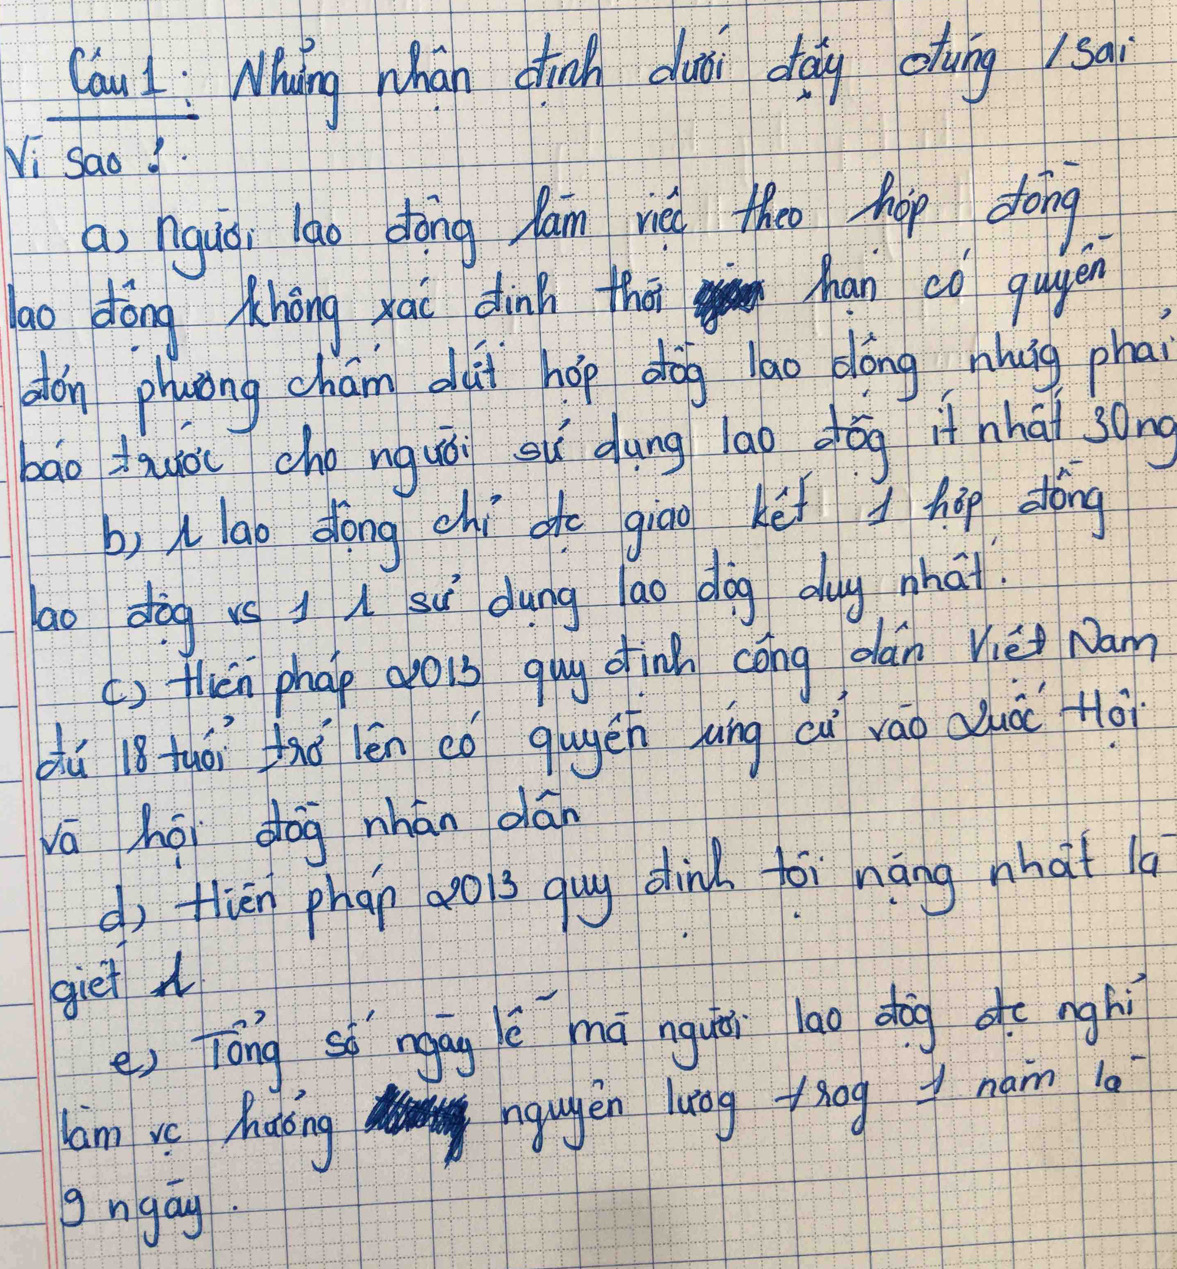 Câu 1: Những nhận định dưới đây đúng / sai
Vì sao?
a) người lao động làm việc theo hợp đồng
lao động không xác định thời hạn có quyền
đơn phương chấm dứt hợp đồg lao động nhưg phải
báo trước cho người sử dụng lao độg ít nhất 30ng
b) lao động chỉ đc giao kết 1 hợp đồng
lao độg vs 1 sử dụng lao độg duy nhất.
c) Hiến pháp 2013 quy định công dân Việt Nam
đủ 18 tuổi trở lên có quyền ứng cử vào Quốc Hội
và hội đồg nhân dân
d) Hiến pháp 2013 quy định tội nặng nhất là
giết
e) Tổng số ngày lễ mà người lao độg đc nghỉ
làm vc hưởng nguyên lươg trog 1 năm là
9 ngày.